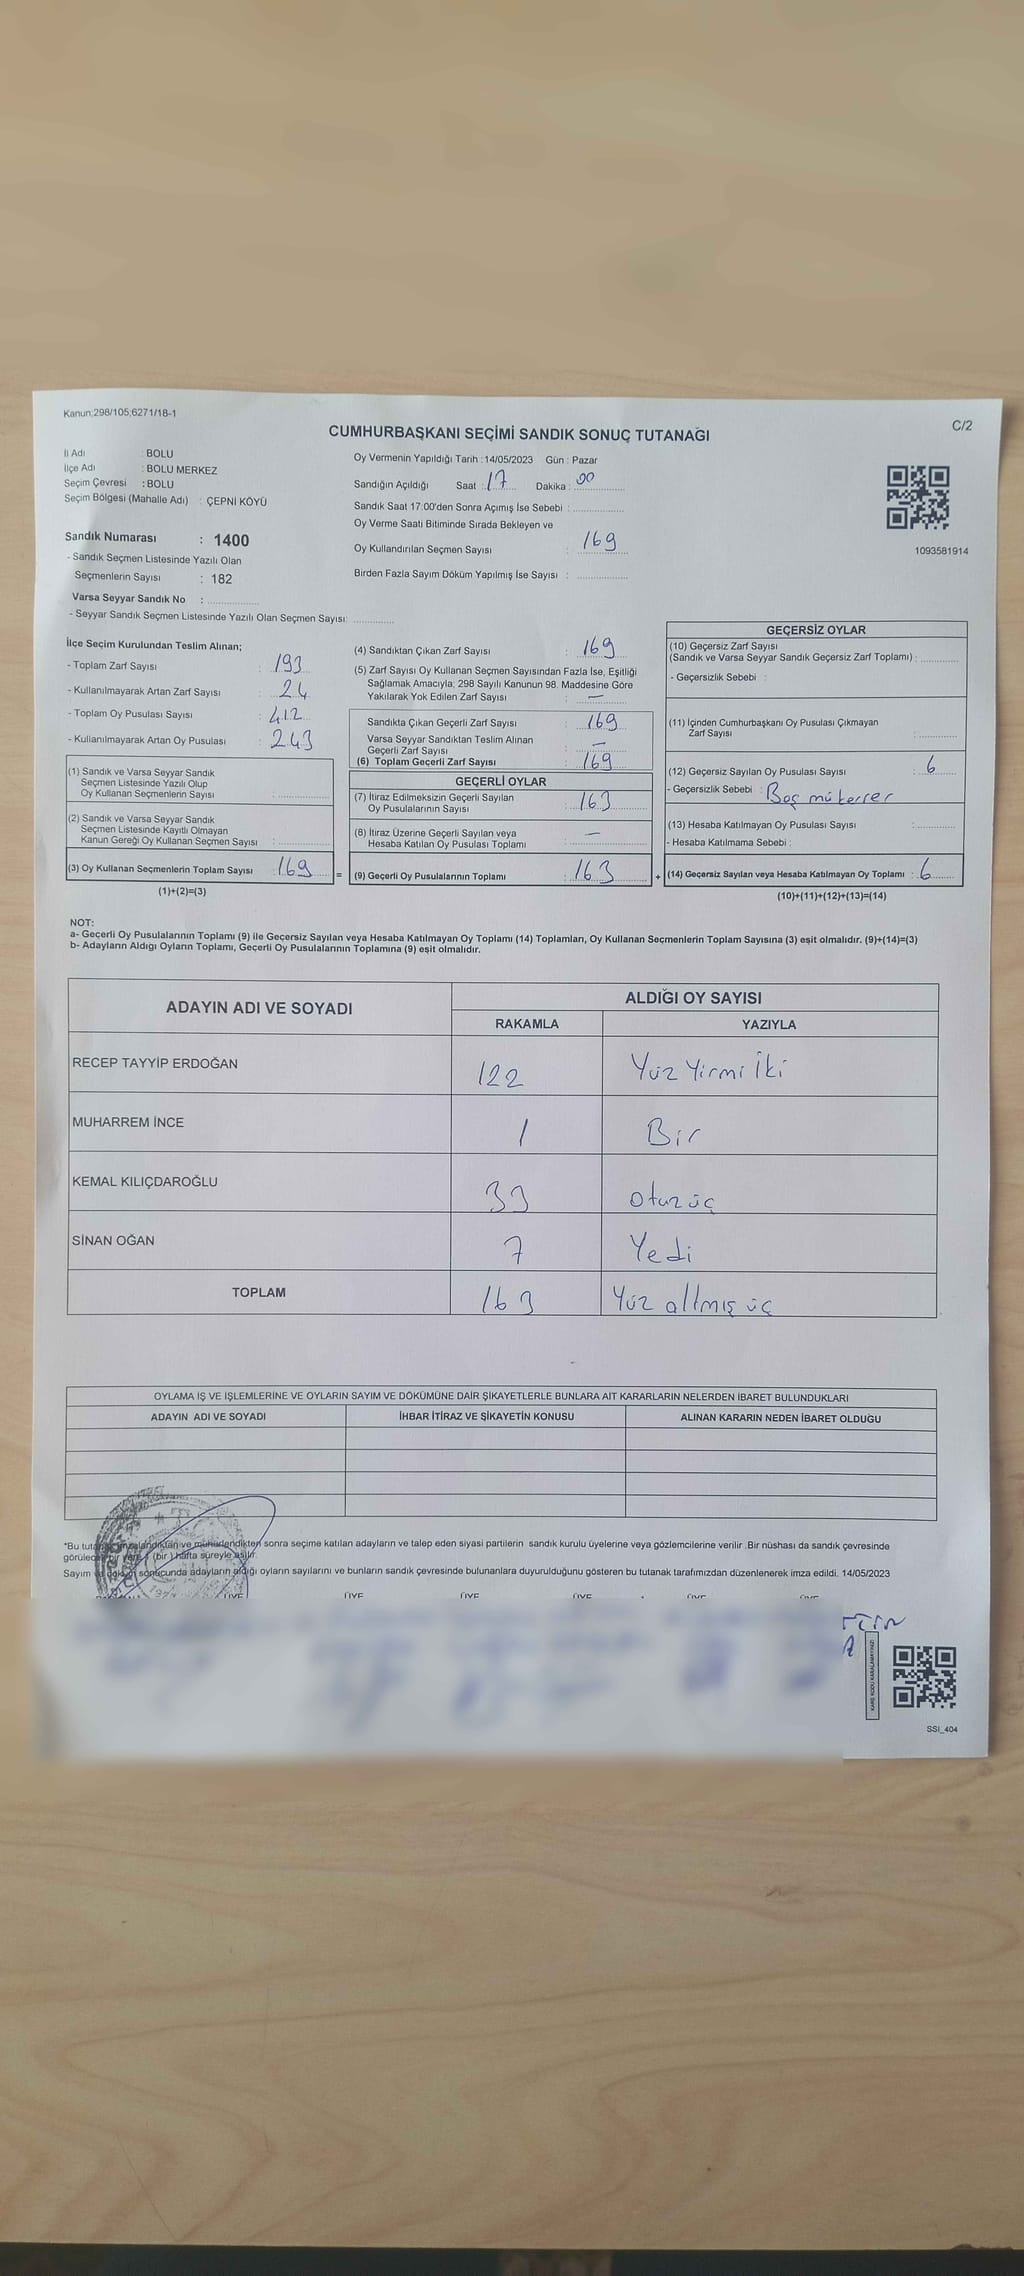 Kanun:298/105;6271/18-1
C/2
CUMHURBAŞKANI SEÇİMİ SANDIK SONUÇ TUTANAĞI
İl Adı : BOLU
İlçe Adı : BOLU MERKEZ
Seçim Çevresi : BOLU
Seçim Bölgesi (Mahalle Adı) : ÇEPNİ KÖYÜ
Sandık Numarası : 1400
- Sandık Seçmen Listesinde Yazılı Olan
Seçmenlerin Sayısı : 182
Varsa Seyyar Sandık No :
- Seyyar Sandık Seçmen Listesinde Yazılı Olan Seçmen Sayısı:
Oy Vermenin Yapıldığı Tarih :14/05/2023 Gün : Pazar
Sandığın Açıldığı Saat : 17 Dakika : 00
Sandık Saat 17:00'den Sonra Açımış İse Sebebi :
Oy Verme Saati Bitiminde Sırada Bekleyen ve
Oy Kullandırılan Seçmen Sayısı : 169
Birden Fazla Sayım Döküm Yapılmış İse Sayısı :
1093581914
İlçe Seçim Kurulundan Teslim Alınan;
- Toplam Zarf Sayısı : 193
- Kullanılmayarak Artan Zarf Sayısı : 24
- Toplam Oy Pusulası Sayısı : 412
- Kullanılmayarak Artan Oy Pusulası : 243
(1) Sandık ve Varsa Seyyar Sandık
Seçmen Listesinde Yazılı Olup
Oy Kullanan Seçmenlerin Sayısı :
(2) Sandık ve Varsa Seyyar Sandık
Seçmen Listesinde Kayıtlı Olmayan
Kanun Gereği Oy Kullanan Seçmen Sayısı :
(3) Oy Kullanan Seçmenlerin Toplam Sayısı : 169
(1)+(2)=(3)
=
(4) Sandıktan Çıkan Zarf Sayısı : 169
(5) Zarf Sayısı Oy Kullanan Seçmen Sayısından Fazla İse, Eşitliği
Sağlamak Amacıyla; 298 Sayılı Kanunun 98. Maddesine Göre
Yakılarak Yok Edilen Zarf Sayısı : —
Sandıkta Çıkan Geçerli Zarf Sayısı : 169
Varsa Seyyar Sandıktan Teslim Alınan
Geçerli Zarf Sayısı : —
(6) Toplam Geçerli Zarf Sayısı : 169
GEÇERLİ OYLAR
(7) İtiraz Edilmeksizin Geçerli Sayılan
Oy Pusulalarının Sayısı : 163
(8) İtiraz Üzerine Geçerli Sayılan veya
Hesaba Katılan Oy Pusulası Toplamı : —
(9) Geçerli Oy Pusulalarının Toplamı : 163
+
GEÇERSİZ OYLAR
(10) Geçersiz Zarf Sayısı
(Sandık ve Varsa Seyyar Sandık Geçersiz Zarf Toplamı) :
- Geçersizlik Sebebi :
(11) İçinden Cumhurbaşkanı Oy Pusulası Çıkmayan
Zarf Sayısı :
(12) Geçersiz Sayılan Oy Pusulası Sayısı : 6
- Geçersizlik Sebebi : Boş mükerrer
(13) Hesaba Katılmayan Oy Pusulası Sayısı :
- Hesaba Katılmama Sebebi :
(14) Geçersiz Sayılan veya Hesaba Katılmayan Oy Toplamı : 6
(10)+(11)+(12)+(13)=(14)
NOT:
a- Geçerli Oy Pusulalarının Toplamı (9) ile Geçersiz Sayılan veya Hesaba Katılmayan Oy Toplamı (14) Toplamları, Oy Kullanan Seçmenlerin Toplam Sayısına (3) eşit olmalıdır. (9)+(14)=(3)
b- Adayların Aldığı Oyların Toplamı, Geçerli Oy Pusulalarının Toplamına (9) eşit olmalıdır.
ADAYIN ADI VE SOYADI ALDIĞI OY SAYISI
RAKAMLA YAZIYLA
RECEP TAYYİP ERDOĞAN 122 Yüz Yirmi İki
MUHARREM İNCE 1 Bir
KEMAL KILIÇDAROĞLU 33 otuzüç
SİNAN OĞAN 7 Yedi
TOPLAM 163 Yüz altmış üç
OYLAMA İŞ VE İŞLEMLERİNE VE OYLARIN SAYIM VE DÖKÜMÜNE DAİR ŞİKAYETLERLE BUNLARA AİT KARARLARIN NELERDEN İBARET BULUNDUKLARI
ADAYIN ADI VE SOYADI İHBAR İTİRAZ VE ŞİKAYETİN KONUSU ALINAN KARARIN NEDEN İBARET OLDUĞU
*Bu tutanak imzalandıktan ve mühürlendikten sonra seçime katılan adayların ve talep eden siyasi partilerin sandık kurulu üyelerine veya gözlemcilerine verilir .Bir nüshası da sandık çevresinde
görülecek bir yere 1 (bir ) hafta süreyle asılır.
Sayım ve döküm sonucunda adayların aldığı oyların sayılarını ve bunların sandık çevresinde bulunanlara duyurulduğunu gösteren bu tutanak tarafımızdan düzenlenerek imza edildi. 14/05/2023
ÜYE ÜYE ÜYE ÜYE ÜYE ÜYE
KARE KODU KARALAMAYINIZ!
SSI_404